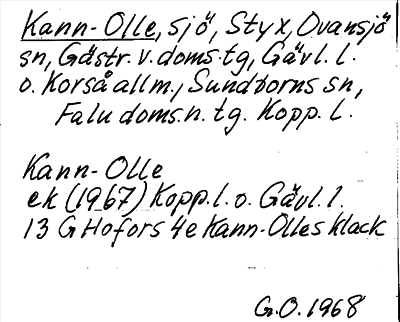 Kann-Olle, sjö, Styx, Ovansjö
sn, Gästr. v. doms. tg, Gävl. l.
o. Korså allm., Sundborns sn,
Falu doms. n. tg. Kopp. l.
Kann-Olle
ek (1967) Kopp. l. o. Gävl. l.
13 G Hofors 4e Kann-Olles klack
G.O. 1968